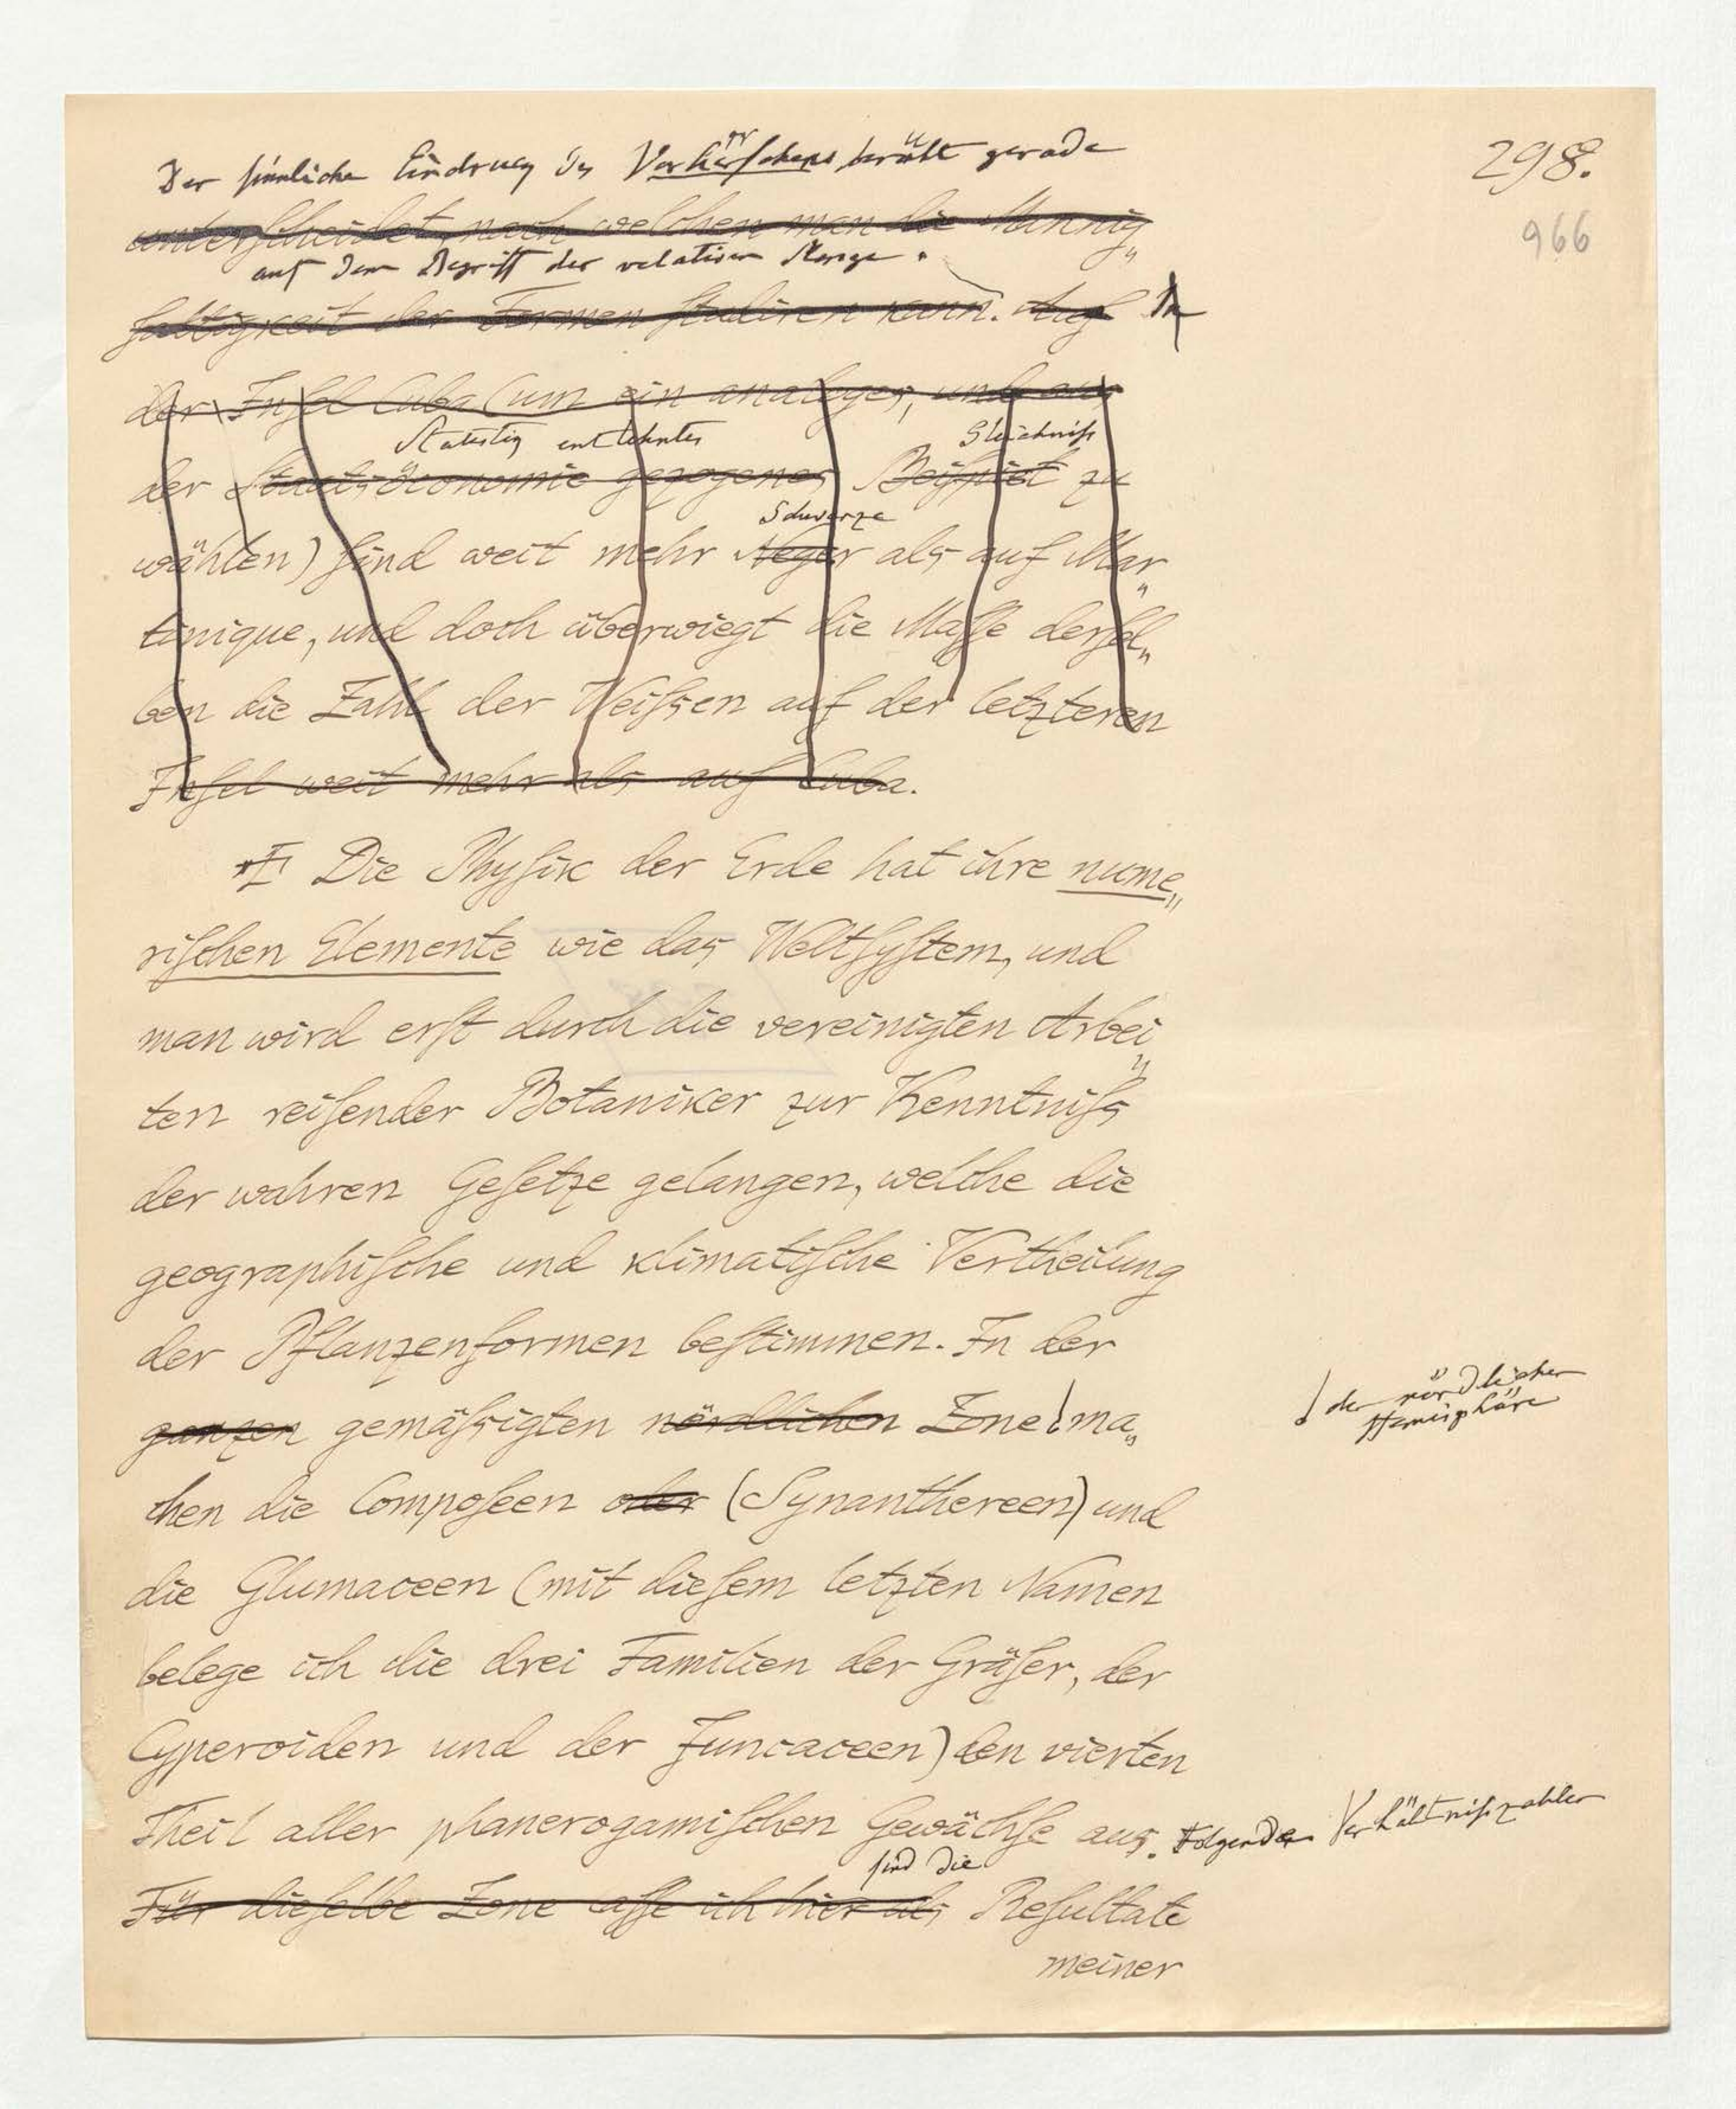 298.
966
Der sinnliche Eindruck des Vorherrschens beruht gerade
unterscheidet, nach welchen man die Mannig„
auf dem Begriff der relativen Menge.
faltigkeit der Formen studiren kann. Auf
der Insel Cuba (um ein analoges, und aus
Statistik entlehntes Gleichniß
der Staatsöconomie gezogenes Beispiel zu
Schwarze
wählen) sind weit mehr Neger als auf Mar„
tinique, und doch überwiegt die Masse dersel„
ben die Zahl der Weißen auf der letzteren
Insel weit mehr als auf Cuba.
Die Physik der Erde hat ihre nume„
rischen Elemente wie das Weltsystem, und
man wird erst durch die vereinigten Arbei„
ten reisender Botaniker zur Kenntniß
der wahren Gesetze gelangen, welche die
geographische und klimatische Vertheilung
der Pflanzenformen bestimmen. In der
ganzen gemäßigten nördlichen Zone ma„
der nördlichen
Hemisphäre
chen die Composeen oder (Synanthereen) und
die Glumaceen (mit diesem letzten Namen
belege ich die drei Familien der Gräser, der
Cyperoiden und der Juncaceen) den vierten
Theil aller phanerogamischen Gewächse aus. Folgende Verhältnißzahlen
sind die
Für dieselbe Zone ich hier als Resultate
meiner